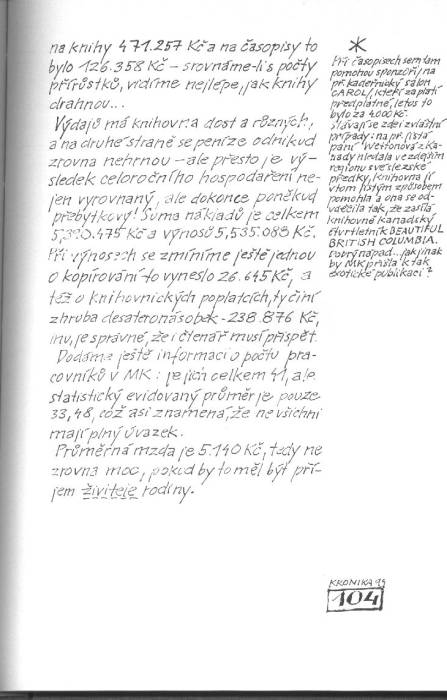 na knihy 471.257 Kč a na časopisy to
bylo 126.358 Kč – srovnáme-li s počty
přírůstků, vidíme nejlépe, jak knihy
drahnou...
Výdajů má knihovna dost a různých,
a na druhé straně se peníze odnikud
zrovna nehrnou – ale přesto je vý-
sledek celoročního hospodaření ne-
jen vyrovnaný, ale dokonce poněkud
přebytkový! Suma nákladů je celkem
475 Kč a výnosů 5,535.088 Kč.
Při výnosech se zmíníme ještě jednou
o kopírování – to vyneslo 26.645 Kč, a
též o knihovnických poplatcích, ty činí
zhruba desateronásobek – 238.876 Kč,
inu, je správné, že i čtenář musí přispět.
Dodáme ještě informaci o počtu pra-
covníků v MK: je jich celkem 41, ale
statistický evidovaný průměr je pouze
33,48, což asi znamená, že ne všichni
mají plný úvazek.
Průměrná mzda je 5.140 Kč, tedy ne
zrovna moc, pokud by to měl být pří-
jem živitele rodiny.
*
Při časopisech sem tam
pomohou sponzoři/na
př. kadeřnický salon
CAROL/, kteří zaplatí
předplatné, letos to
bylo za 4000 Kč.
Stávají se zde i zvláštní
případy: na př. jistá
paní Wettonová z Ka-
nady hledala ve zdejším
regionu své slezské
předky, knihovna jí
v tom jistým způsobem
pomohla a ona se od-
vděčila tak, že zasílá
knihovně kanadský
čtvrtletník BEAUTIFUL
BRITISH COLUMBIA.
Dobrý nápad... jak jinak
by MK přišla k tak
exotické publikaci?
KRONIKA 99
104